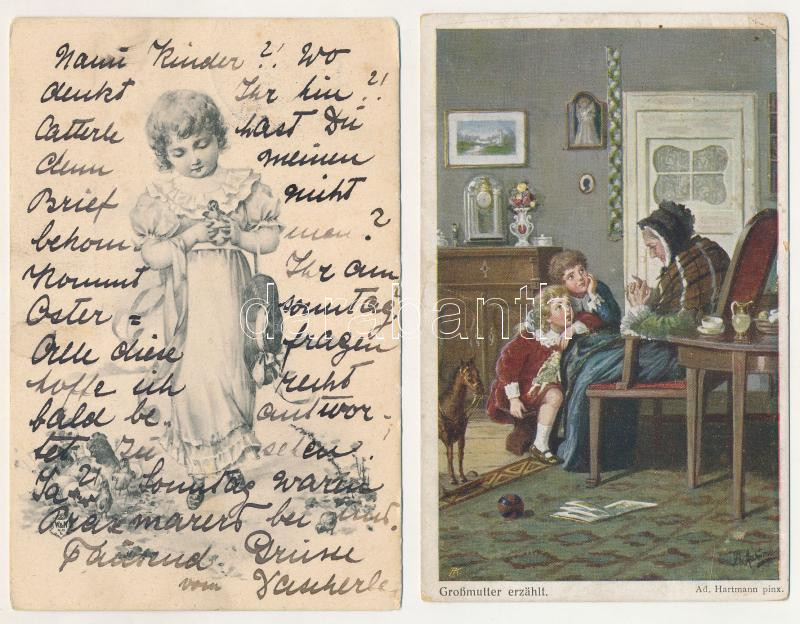 Nanu Kinder?! Wo
denkt Ihr hin?!
Catterle hast Du
denn meinen
Brief nicht
bekom. men.?
Kommt Ihr am
Oster = sonntag.
Alle diese fragen
hoffe ich recht
bald be. antwor-
tet zu sehen!
Ja?! Sonntag waren
bei
Tausend Grüsse
vom
darabanth
Großmutter erzählt.
Ad. Hartmann pinx.